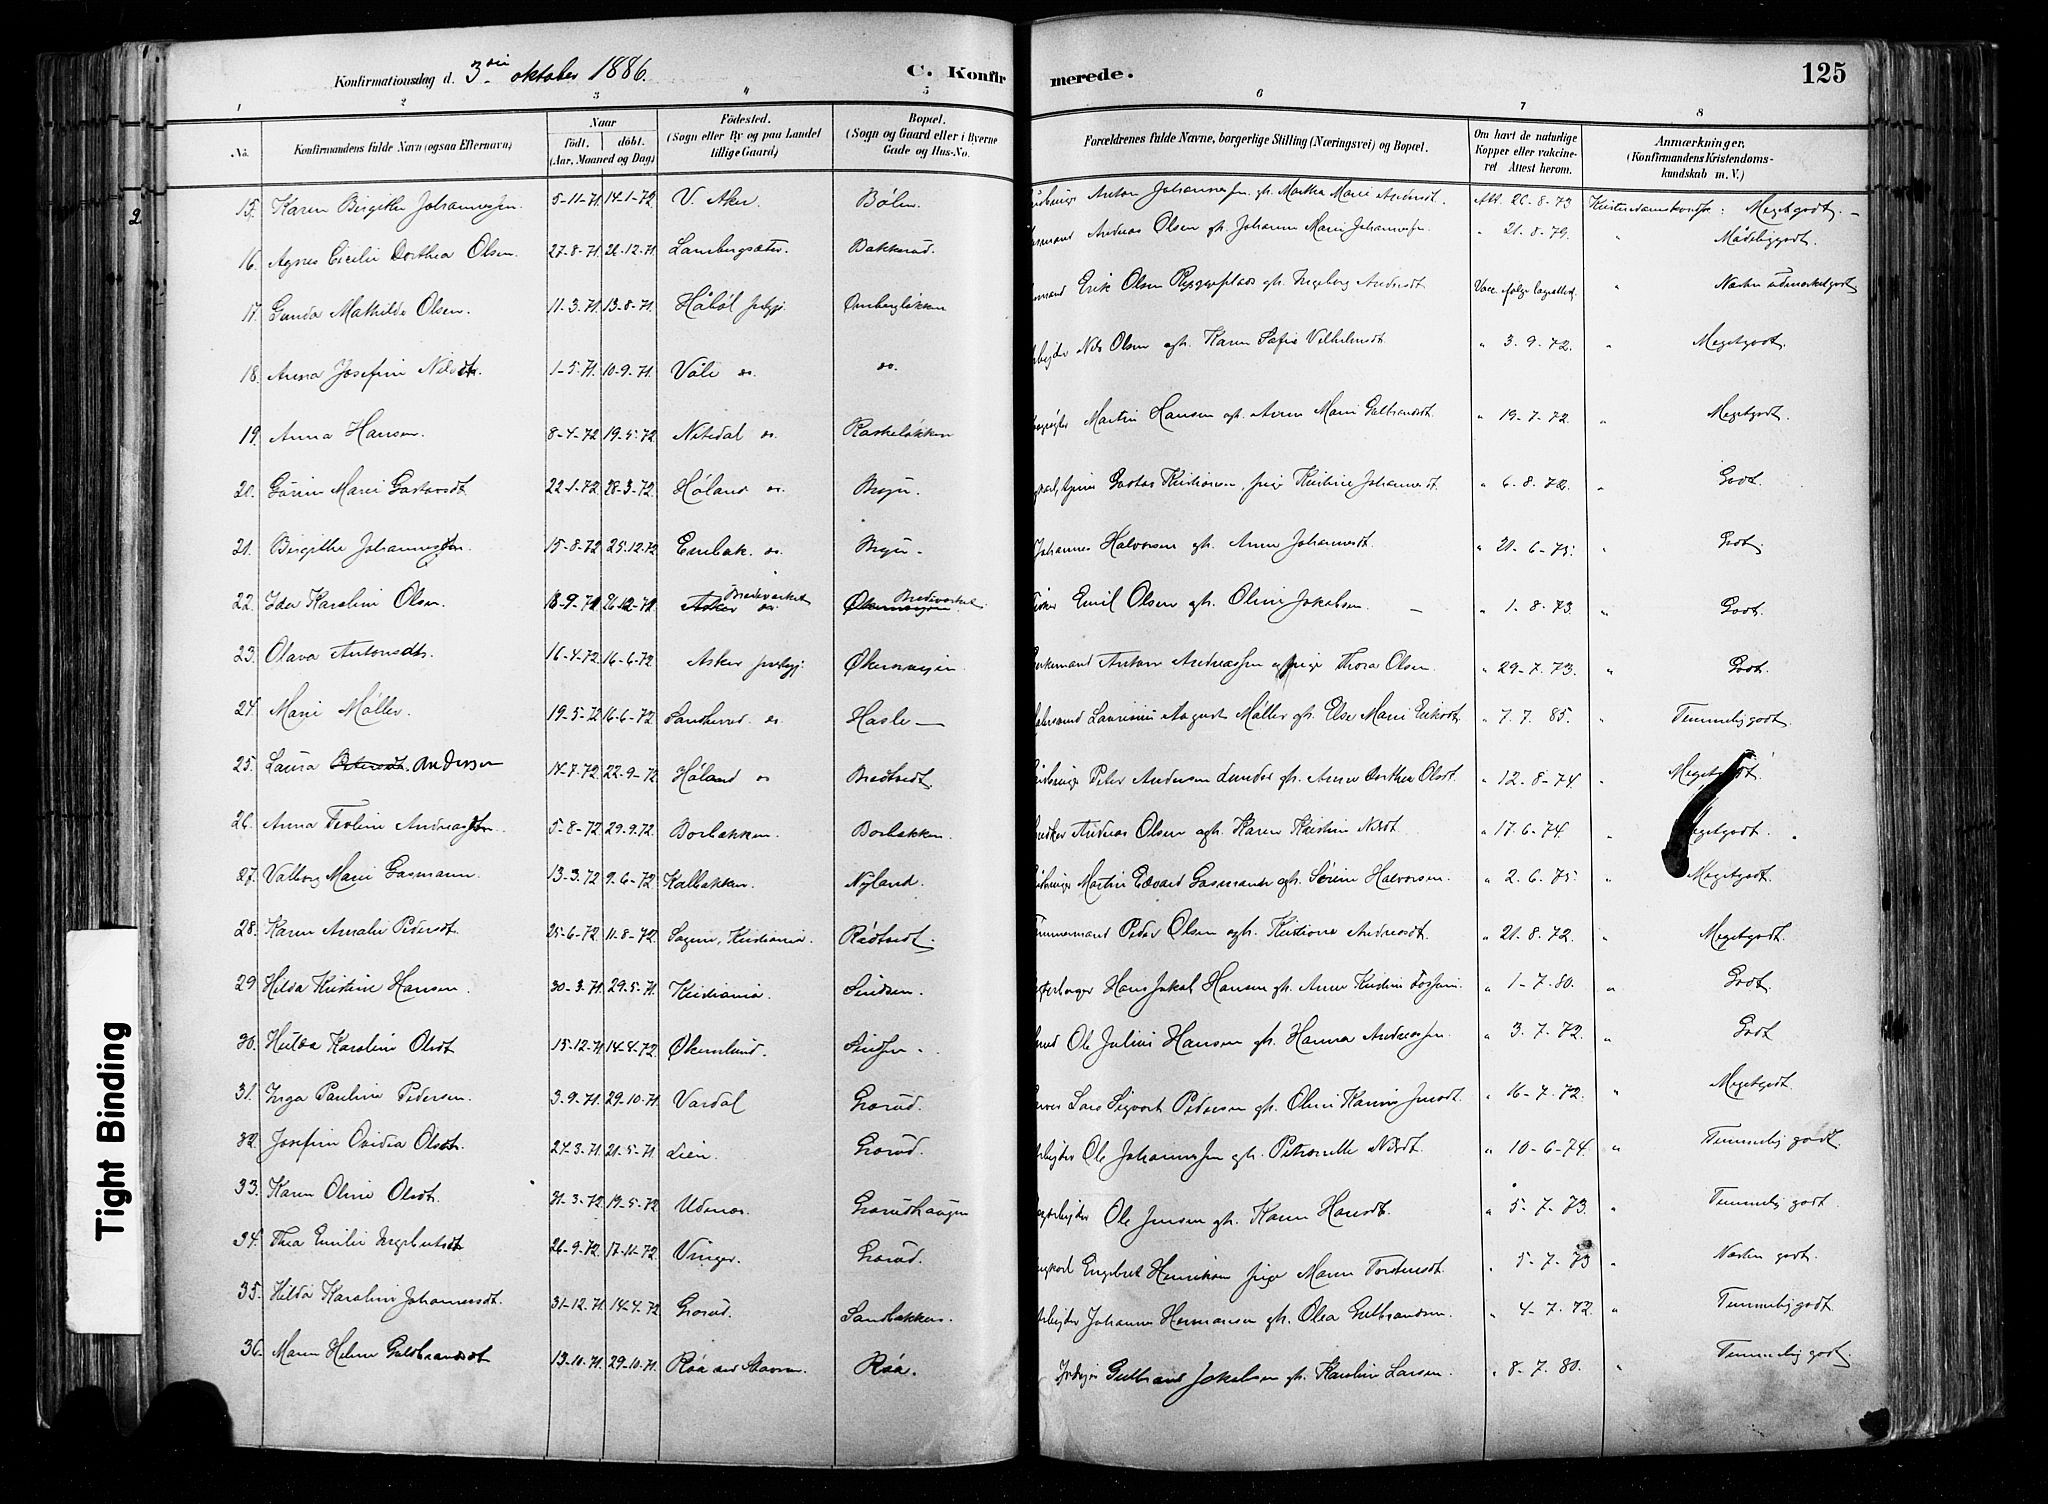 Konfirmationsdag d. 3die oktober 1886. C. Konfir merede. 125
1 2 3 4 5 6 7 8
No. Konfirmandens fulde Navn (ogsaa Efternavn) Naar født. døbt. (Aar, Maaned og Dag) Fødested. (Sogn eller By og paa Landet tillige Gaard) Bopæl. (Sogn og Gaard eller i Byerne Gade og Hus-No. Forældrenes fulde Navne, borgerlige Stilling (Næringsvei) og Bopæl. Om havt de naturlige Kopper eller vakcineret Attest herom. Anmærkninger, (Konfirmandens Kristendomskundskab m. V.)
2
15. Karen Birgitte Johannessen. 5-11-71 14-1-72 V. Aker. Bølen Anton Johannessen gh. Martha Marie Andersdt. Att. 26-8-73 Kristendomskundsk: Megetgodt.
16. Agnes Cecilie Dorthea Olsen. 27-8-71 26-12-71 Lambergsæter. Bakkerud. Andreas Olsen gh. Johanne Marie Johannessen " 21-8-79. " Mådeliggodt.
17. Gunda Mathilde Olsen. 11-3-71 13-8-71 Håbøl prstgj. Erik Olsen gh. Ingeborg Andersdt " Næsten udmærketgodt
18. Anna Josefine Nilsdt. 1-5-71. 10-9-71. Våle Nils Olsen gh. Karen Sofie Vilhelmsdt " 3-9-72. " Megetgodt.
19. Anna Hansen. 8-4-72 19-5-72 Nitedal Martin Hansen gh. Anne Marie Gulbrandsdt " 19-7-72. " Megetgodt.
20. Marie Gustavsdt 22-1-72 28-3-72. Høland Bryn. Gustav Kristiansen, pige Kristine Johannesdt " 6-8-72. " Godt.
21. Birgithe Johannesdtr. 15-8-72 25-12-72 Enebak Bryn. Johannes Halvorsen gh. Anne Johannesdt. " 21-6-73. " Godt.
22. Ida Karoline Olsen. 18-9-71 26-12-71. Asker Bredeverket Bredeverket Emil Olsen gh. Oline Jakobsen " 1-8-73. " Godt.
23. Olava Antonsdtr. 16-4-72 16-6-72 Asker prstgj. Økernveien Anton Andreassen og pige Thora Olsen. " 29-7-73. " Godt.
24. Marie Møller. 19-5-72 16-6-72 Sandherred Hasle Laurinus August Møller gh. Else Marie Eriksdt. " 7-7-85. " Temmeliggodt.
25. Laura Petersdt. Andersen 14-7-72 22-9-72 Høland Bredtvedt. Peter Andersen Lunder gh. Anne Dorthea Olsdt. " 12-8-74. " Megetgodt.
26. Anna Teoline Andreasdtr. 5-8-72 29-9-72. Borbakken. Borbakken. Andreas Olsen gh. Karen Kristine Nilsdt. " 17-6-74 " Megetgodt.
27. Valborg Marie Gasmann. 13-3-72 9-6-72 Kalbakken. Nyland. Martin Edvard Gasmann gh. Sørine Halvorsen. " 2-6-75 " Megetgodt.
28. Karen Amalie Pedersdt. 25-6-72 11-8-72 Sagene, Kristiania. Rødtvedt. Tømmermand Peder Olsen gh. Kristiane Andreasdt. " 21-8-72. " Megetgodt.
29 Hilda Kristine Hansen. 30-3-71. 29-5-71. Kristiania. Sinsen. Hans Jakob Hansen gh. Anne Kristine " 1-7-80. " Godt.
30. Hulda Karoline Olsdt 15-12-71 14-4-72. Økernlund. Sinsen. Ole Julius Hansen gh. Hanna Andreassen. " 3-7-72. " Godt
31. Inga Pauline Pedersen. 3-9-71 29-10-71. Vardal Grorud. Lars Sigvart Pedersen gh. Oline Karine Jensdt. " 16-7-72. " Megetgodt.
32. Josefine Ovidia Olsdtr. 24-3-71 21-5-71. Lien. Grorud. Ole Johannessen gh. Petronelle Nilsdt. " 10-6-74. " Temmelig godt.
33. Karen Oline Olsdt. 31-3-72 19-5-72 Udenes. Grorudhaugen Ole Jensen gh. Karen Hansdt. " 5-7-73. " Temmelig godt.
34. Thea Emilie Ingebretsdt 26-9-72. 17-11-72. Vinger. Grorud. Engebret Henriksen pige Maren Torstensdt. " 5-7-73 " Næsten godt.
35. Hilda Karoline Johannesdt. 31-12-71. 14-4-72 Grorud. Sandbakken. Johannes Hermansen gh. Olea Gulbrandsen. " 4-7-72. " Temmeliggodt.
36. Maren Helene Guldbrandsdt 13-10-71. 29-10-71. Røa Røa. Gulbrand Jakobsen gh. Karoline Larsen. " 8-7-80. " Temmelig godt.
Tight Binding